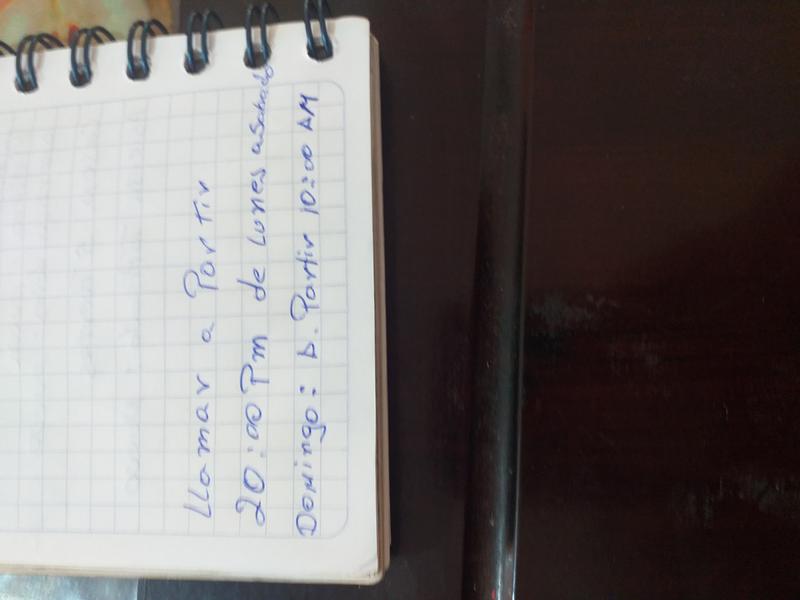 Llamar a Partir
20:00 Pm de Lunes a Sabado
Domingo: A. Partir 10:00 AM